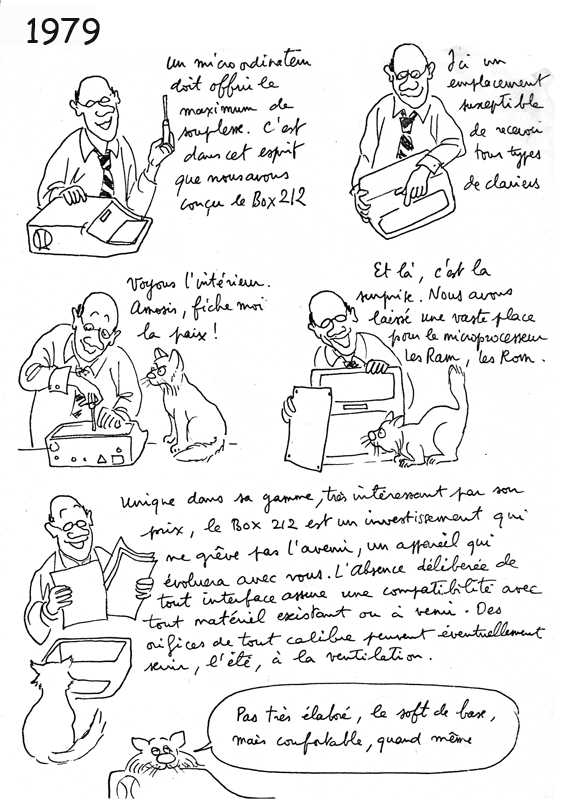 1979
Un micro ordinateur
doit offrir le
maximum de
souplesse. C'est
dans cet esprit
que nous avons
conçu le Box 212
Ici un
emplacement
suceptible
de recevoir
tous types
de claviers
Voyons l'intérieur.
Amosis, fiche moi
la paix !
Et là, c'est la
surprise. Nous avons
laissé une vaste place
pour le microprocesseur
les Ram, les Rom.
Unique dans sa gamme, très intéressant par son
prix, le Box 212 est un investissement qui
ne grêve pas l'avenir, un appareil qui
évoluera avec vous. L'Absence délibérée de
tout interface assure une compatibilité avec
tout matériel existant ou à venir. Des
orifices de tout calibre peuvent éventuellement
servir, l'été, à la ventilation.
Pas très élaboré, le soft de base,
mais confortable, quand même